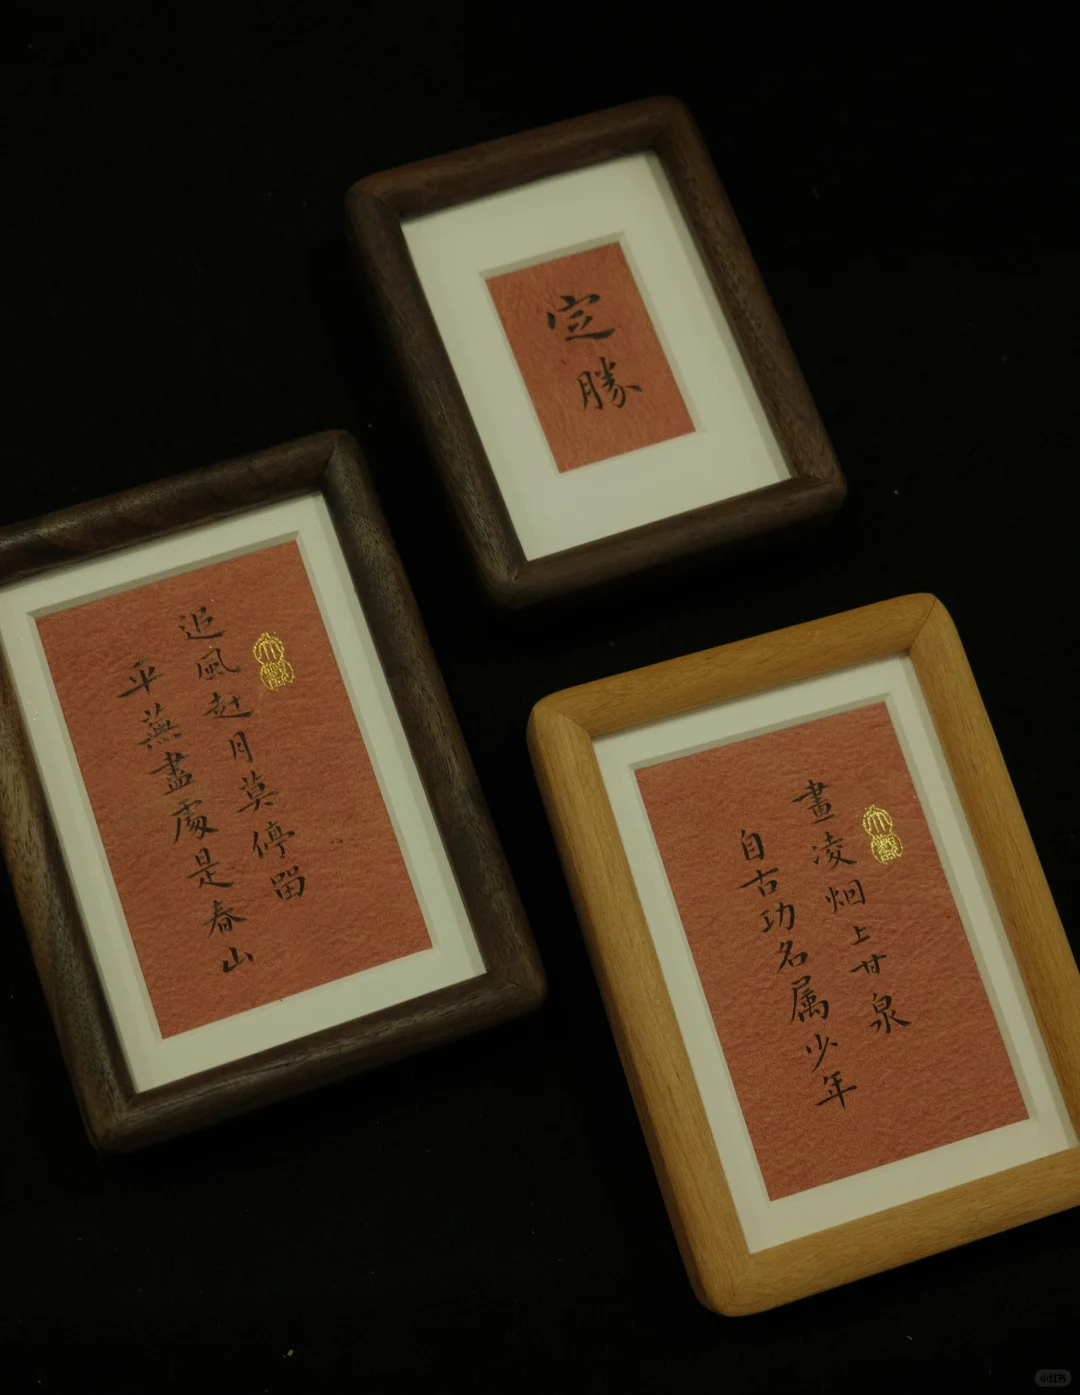 定勝
追風赶月莫停留
平蕪盡處是春山
畫凌烟上甘泉
自古功名属少年
小红书